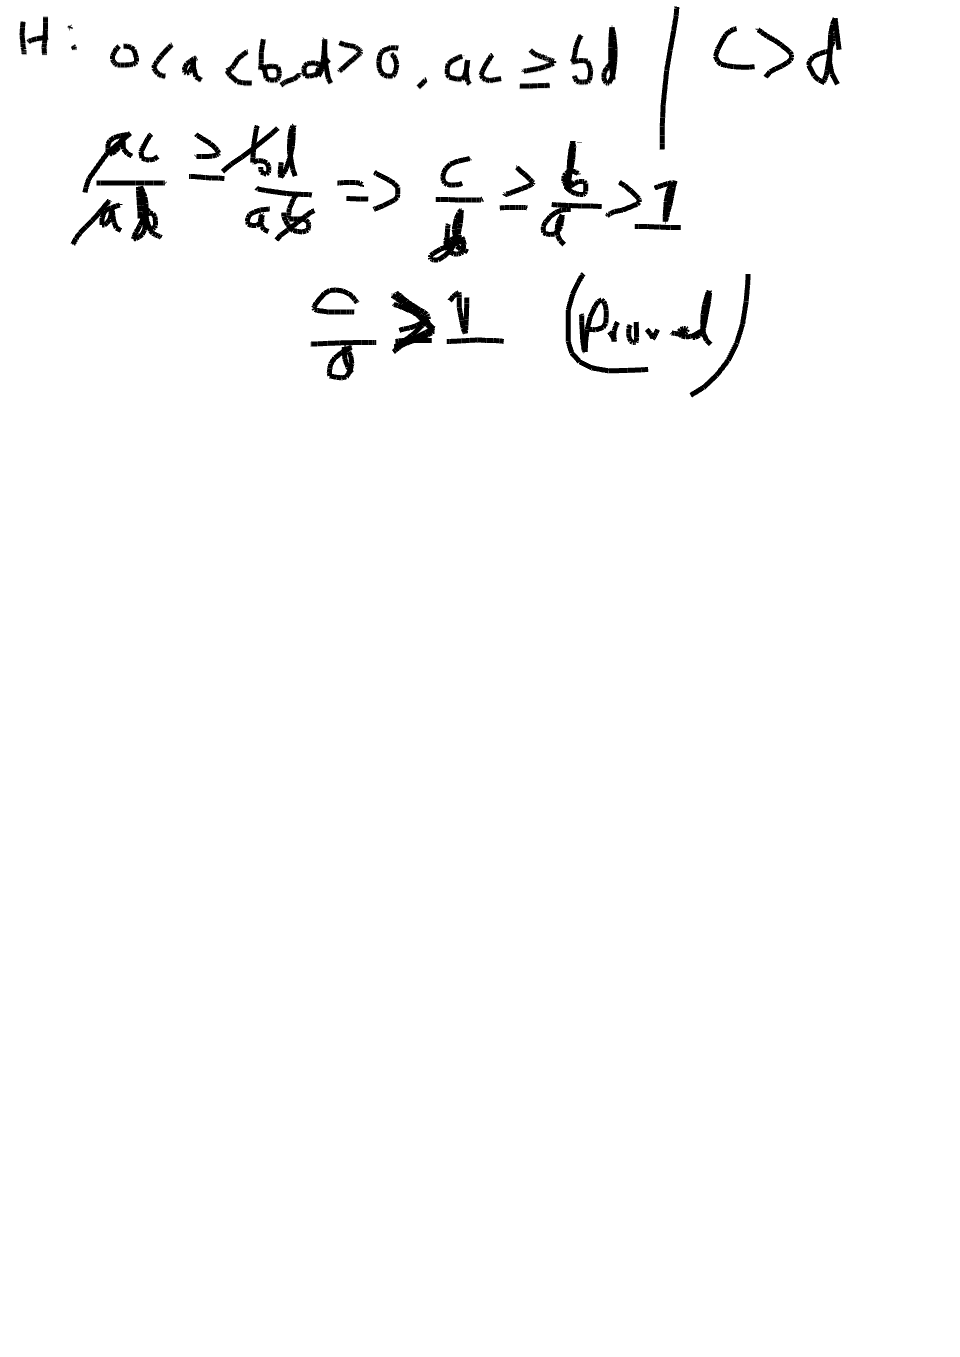 H: 0 < a < b, d > 0, ac ≥ bd | c > d
ac/ad ≥ bd/ab => c/d ≥ b/a > 1
c/d ≥ 1 (Proved)